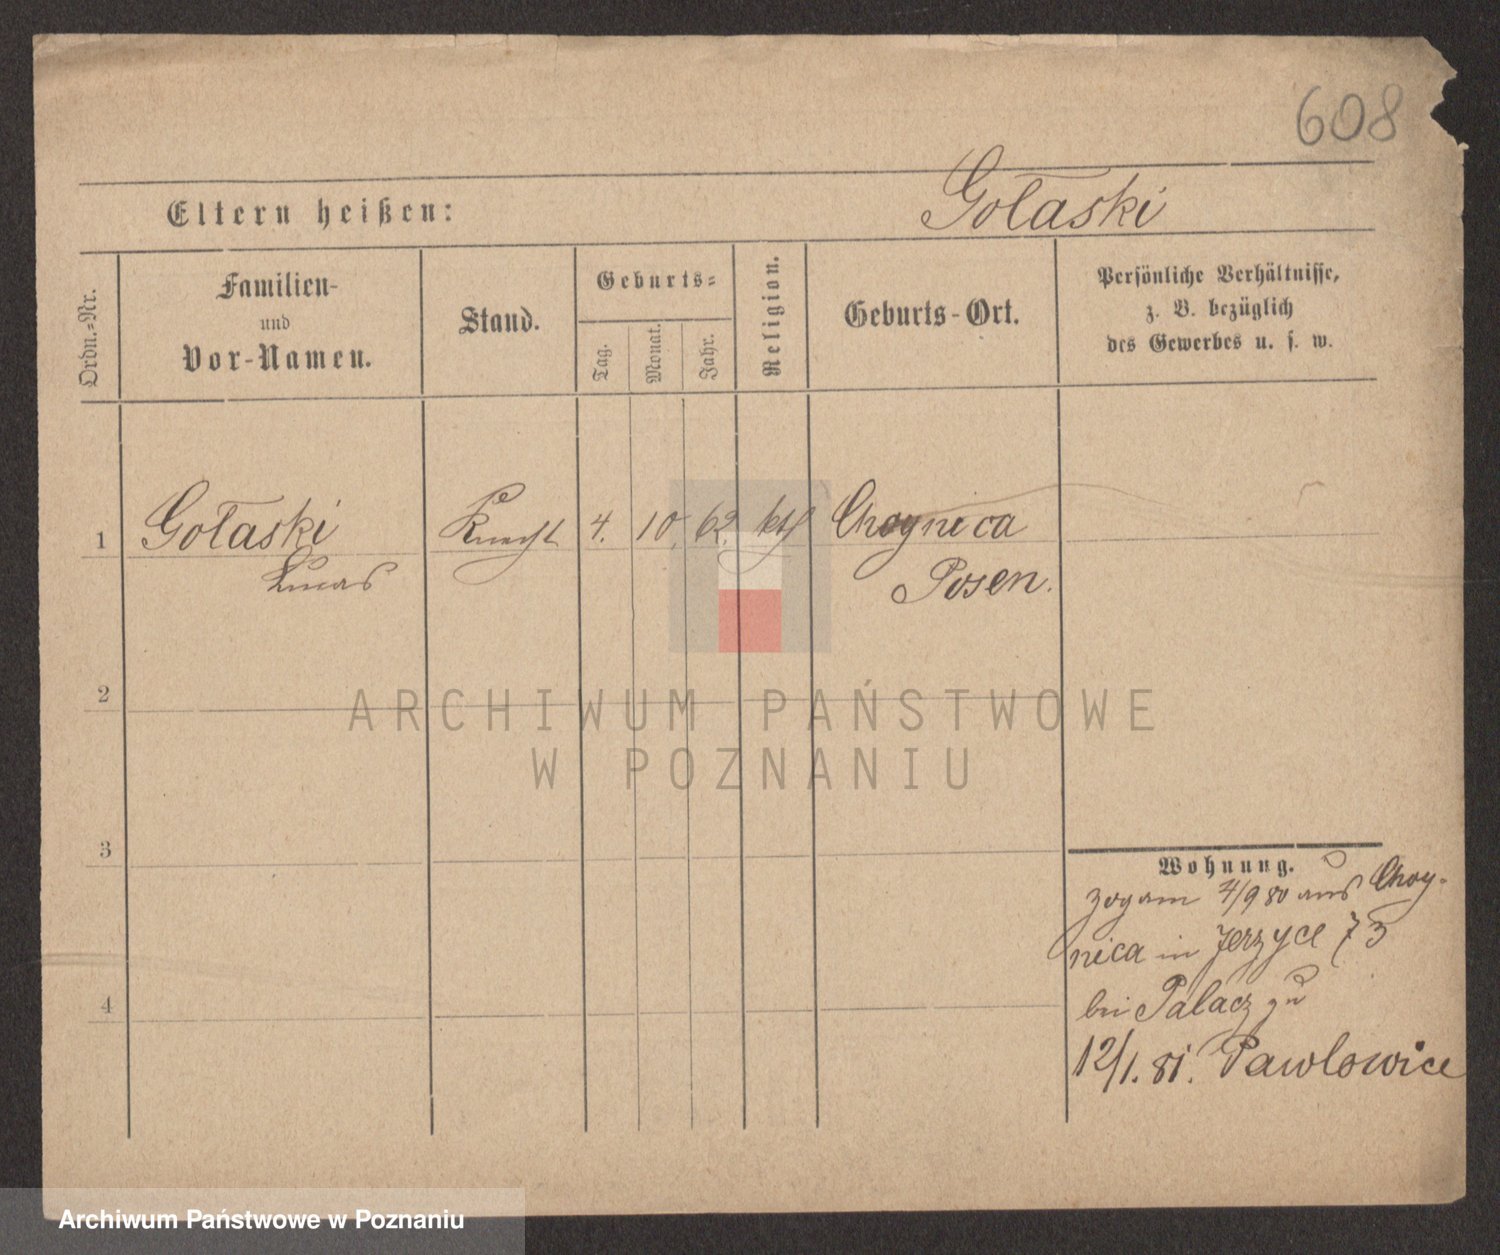 608
Eltern heißen:
Gołaski
Ordn.=Nr.
Familien-
und
Vor-Namen.
Stand.
Geburts=
Tag.
Monat.
Jahr.
Religion.
Geburts-Ort.
Persönliche Verhältnisse,
z. B. bezüglich
des Gewerbes u. s. w.
1
Gołaski
Lucas
Knecht
4.
10.
62.
kth
Choynica
Posen.
2
ARCHIWUM PAŃSTWOWE
W POZNANIU
3
Wohnung.
zog am 4/9 80 aus Choy-
nica in Jerzyce 73
bei Palacz zu
12/1. 81. Pawlowice
4
Archiwum Państwowe w Poznaniu